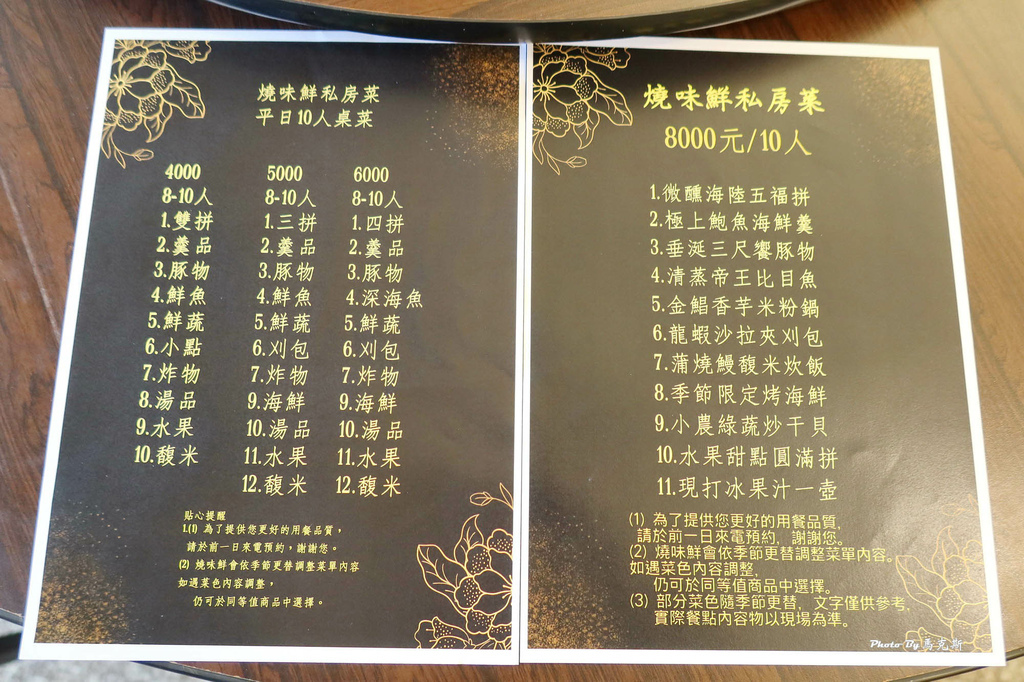 燒味鮮私房菜
平日10人桌菜
4000
8-10人
1.雙拼
2.羹品
3.豚物
4.鮮魚
5.鮮蔬
6.小點
7.炸物
8.湯品
9.水果
10.馥米
5000
8-10人
1.三拼
2.羹品
3.豚物
4.鮮魚
5.鮮蔬
6.刈包
7.炸物
9.海鮮
10.湯品
11.水果
12.馥米
6000
8-10人
1.四拼
2.羹品
3.豚物
4.深海魚
5.鮮蔬
6.刈包
7.炸物
9.海鮮
10.湯品
11.水果
12.馥米
貼心提醒
1.(1) 為了提供您更好的用餐品質，
請於前一日來電預約，謝謝您。
(2) 燒味鮮會依季節更替調整菜單內容
如遇菜色內容調整，
仍可於同等值商品中選擇。
燒味鮮私房菜
8000元/10人
1.微醺海陸五福拼
2.極上鮑魚海鮮羹
3.垂涎三尺饗豚物
4.清蒸帝王比目魚
5.金鯧香芋米粉鍋
6.龍蝦沙拉夾刈包
7.蒲燒鰻馥米炊飯
8.季節限定烤海鮮
9.小農綠蔬炒干貝
10.水果甜點圓滿拼
11.現打冰果汁一壺
(1) 為了提供您更好的用餐品質,
請於前一日來電預約, 謝謝您。
(2) 燒味鮮會依季節更替調整菜單內容。
如遇菜色內容調整,
仍可於同等值商品中選擇。
(3) 部分菜色隨季節更替, 文字僅供參考,
實際餐點內容物以現場為準。
Photo By 馬克斯